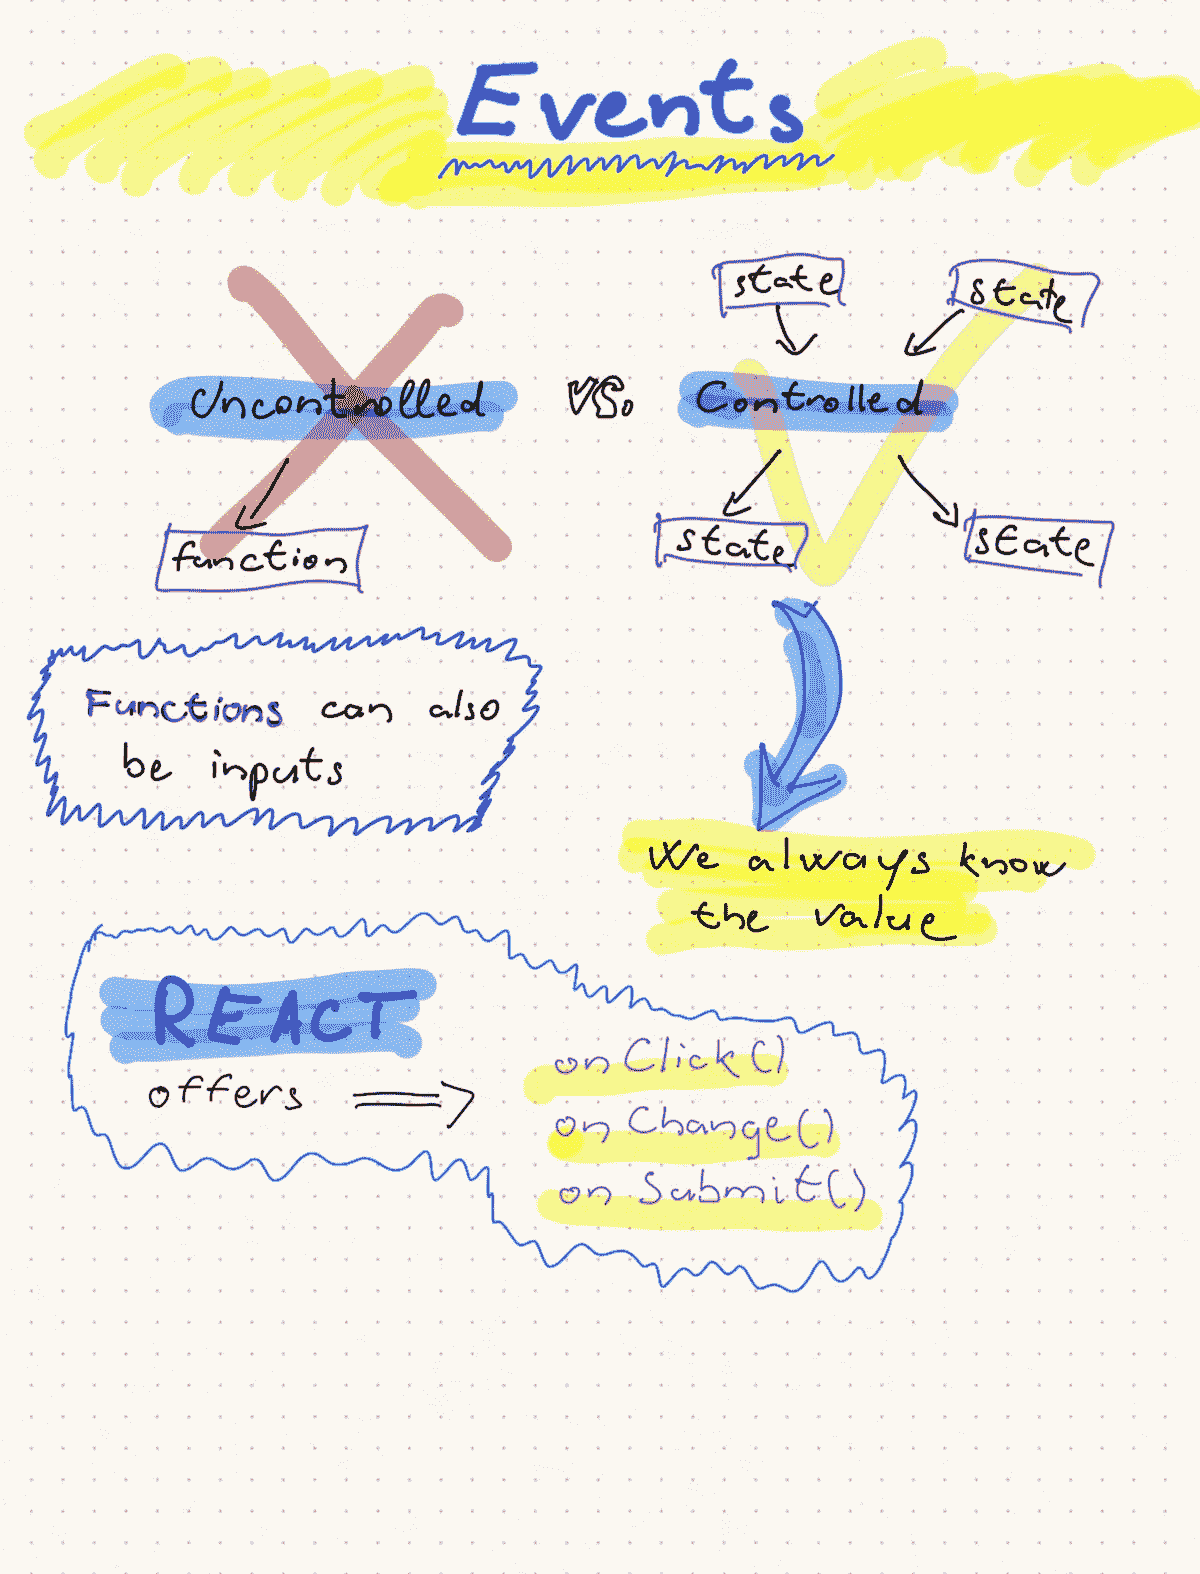 Events
state
state
Uncontrolled vs. Controlled
function
state
state
Functions can also
be inputs
We always know
the value
REACT
offers
onClick()
onChange()
onSubmit()